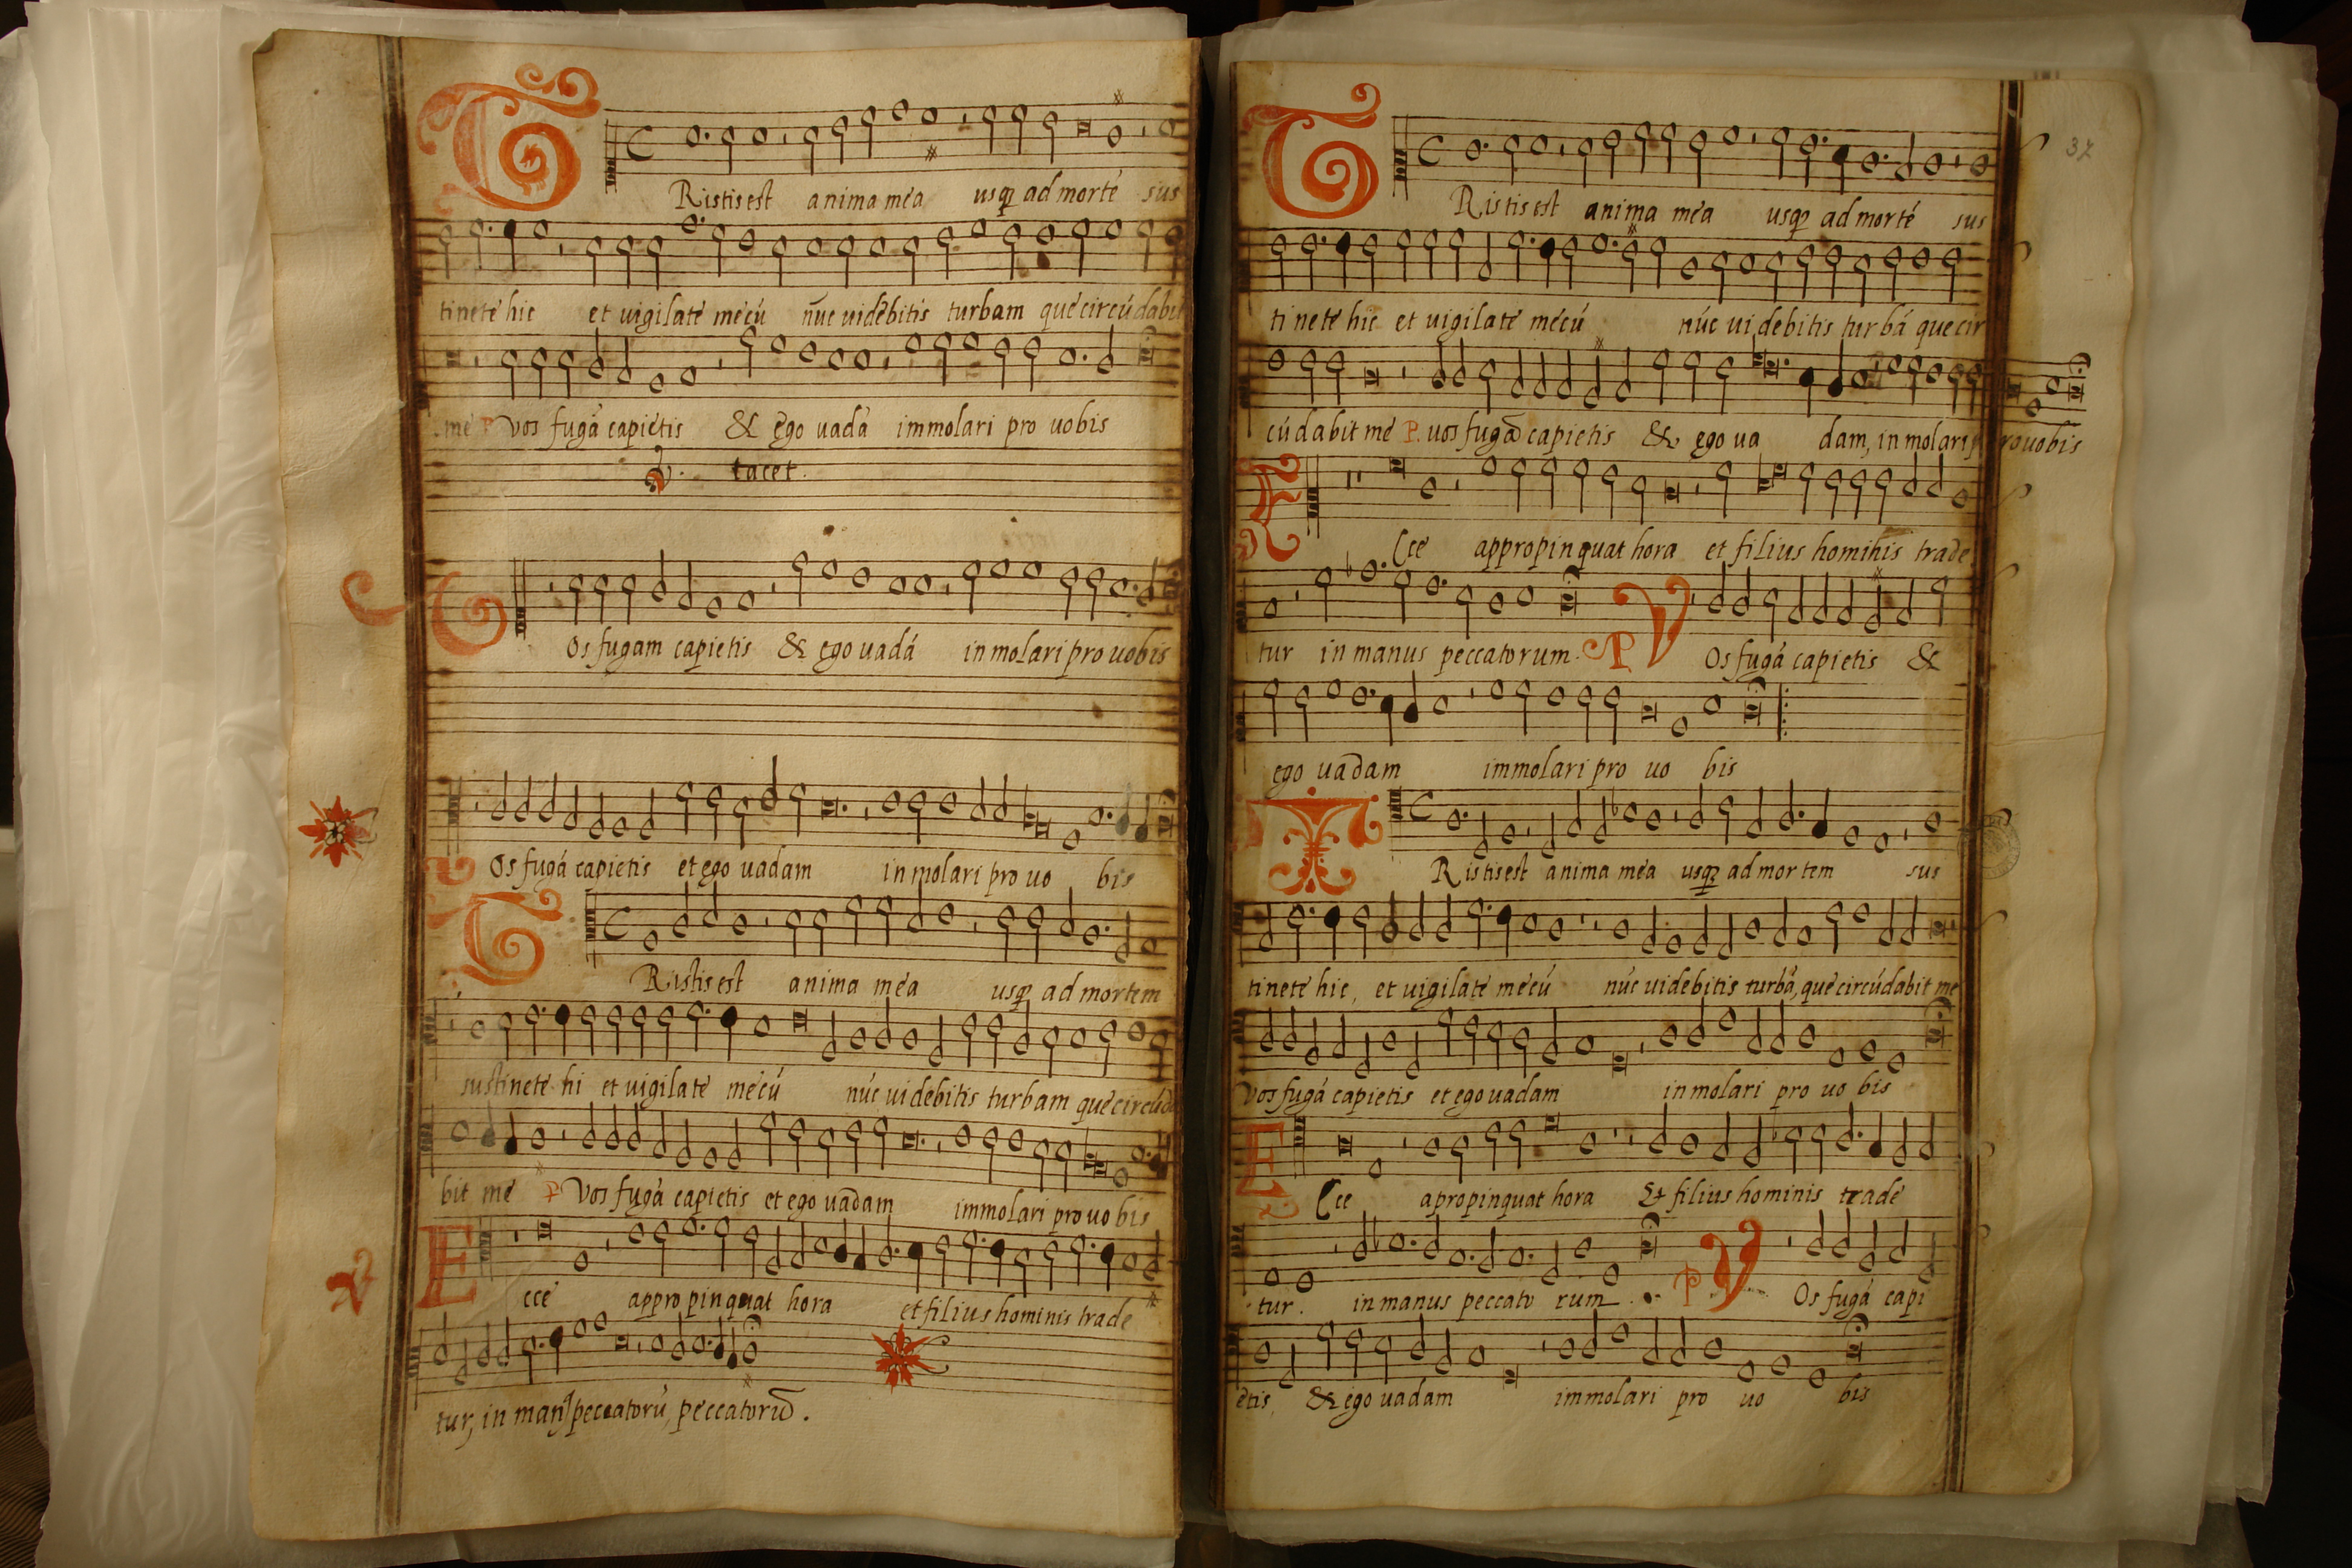 TRistis est anima mea usqꝫ ad morté sus
tinete hic et uigilate mecú nūc uidebitis turbam que circúdabit
me P Vos fugá capietis & ego uadá immolari pro uobis
V. tacet.
Os fugam capietis & ego uadá in molari pro uobis
Os fugá capietis et ego uadam in molari pro uo bis
TRistis est anima mea usqꝫ ad mortem
sustinete hi et uigilate mecú núc uidebitis turbam que circúda
bit me P Vos fugá capietis et ego uadam immolari pro uo bis
Ecce appropinquat hora et filius hominis trade
V
tur, in man9 peccatorú, peccatorū.
37
TRistis est anima mea usqꝫ ad morté sus
tinete hic et uigilate mécú núc uidebitis turbá que cir
cúdabit me P. uos fugā capietis & ego ua dam, in molari prouobis
Ecce appropinquat hora et filius hominis trade
tur in manus peccatorum. P VOs fugá capietis &
ego uadam immolari pro uo bis
TRistis est anima mea usqꝫ ad mortem sus
tinete hic, et uigilate mecú núc uidebitis turbá, que circúdabit me
Vos fugá capietis et ego uadam in molari pro uo bis
Ecce apropinquat hora Et filius hominis trade
tur. in manus peccato rum. P VOs fugá capi
etis, & ego uadam immolari pro uo bis